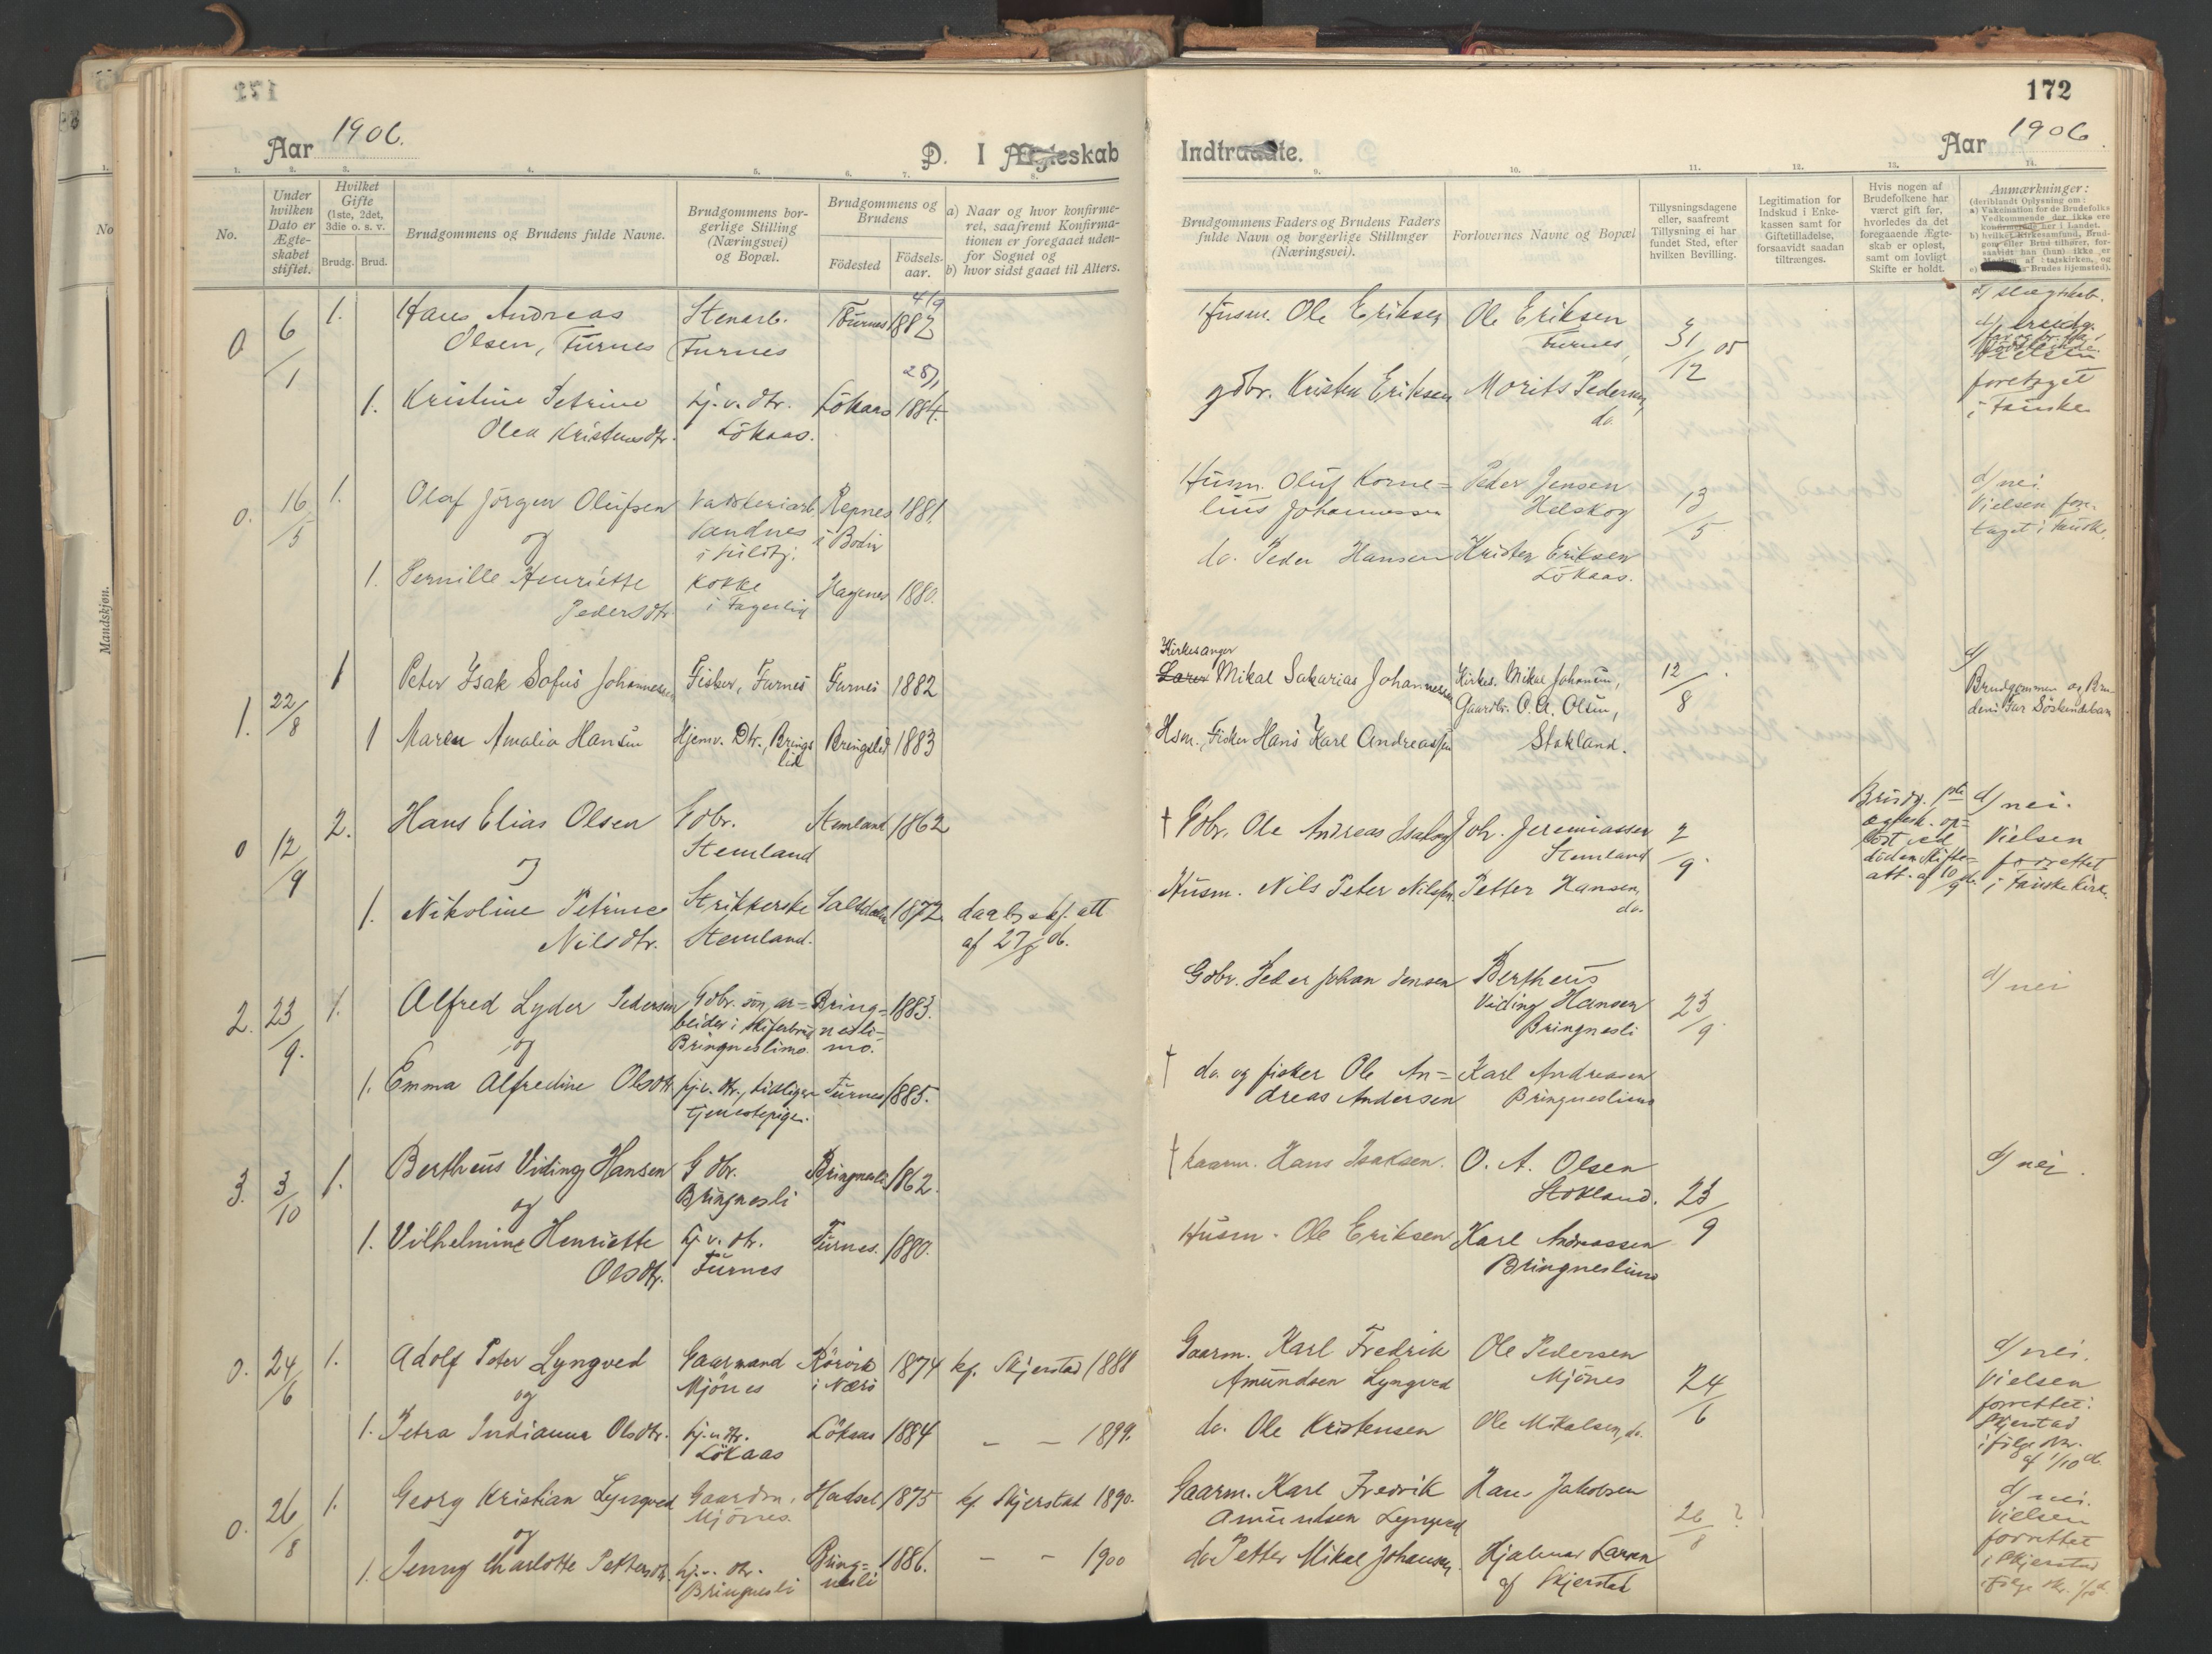 172
Aar 1906.
D. I Ægteskab
Indtraadte.
Aar 1906.
No.
Under hvilken Dato er Ægteskabet stiftet.
Hvilket Gifte (1ste, 2det, 3die o. s. v.
Brudg. Brud.
Brudgommens og Brudens fulde Navne.
Brudgommens borgerlige Stilling (Næringsvei) og Bopæl.
Brudgommens og Brudens
Födested
Fødselsaar.
a) Naar og hvor konfirmeret, saafremt Konfirmationen er foregaaet udenfor Sognet og
b) hvor sidst gaaet til Alters.
Brudgommens Faders og Brudens Faders fulde Navn og borgerlige Stillinger (Næringsvei).
Forlovernes Navne og Bopæl
Tillysningsdagene eller, saafremt Tillysning ei har fundet Sted, efter hvilken Bevilling.
Legitimation for Indskud i Enkekassen samt for Giftetilladelse, forsaavidt saadan tiltrænges.
Hvis nogen af Brudefolkene har været gift før, hvorledes da det foregaaende Ægteskab er opløst, samt om lovligt Skifte er holdt.
Anmærkninger:
0. 6/1 1. Hans Andreas Stenarb. Furnes 4/9 1882
Olsen, Furnes Furnes
1. Kristine Petrine hj. v. dtr. Lökaas 1884.
Olea Kristensdtr. Lökaas.
Husm. Ole Eriksen Ole Eriksen
Furnes, 31/12 05
gdbr. Kristen Eriksen Morits Pedersen
do.
foretaget
i Fauske
0. 16/5 1. Olaf Jörgen Olufsen Repnes 1881.
og Sandnes i Bodin
1. Pernille Henriette kokke Hagenes 1880.
Pedersdtr. i Fagerlid
Husm. Oluf Korne= Peder Jensen 13/5 d/ nei.
lius Johannessen Helskog Vielsen fore-
do. Peder Hansen Kristen Eriksen taget i Fausk.
Lökaas.
1. 22/8 1 Peter Isak Sofus Johannessen Fisker, Furnes Furnes 1882
1 Maren Amalia Hansen Hjemv. Dtr., Brings Bringslid 1883
lid
Kirkesanger
Mikal Sakarias Johannessen Kirkes. Mikal Johansen, 12/8 d/
Gaardbr. O. A. Olsen, Brudgommen og Bru-
Hsm., Fisker Hans Karl Andreassen Stokland. dens Far Söskendebarn
0 12/9 2. Hans Elias Olsen Gdbr. Stemland 1862
og Stemland
1. Nikoline Petrine Strikkerske Saltdalen 1872 daabs. & kf. att
Nilsdtr. Stemland. af 27/8 06.
† Gdbr. Ole Andreas Isaksen Joh. Jeremiassen 2/9 d/ nei.
Stemland Vielsen
Husm. Nils Peter Nilsen Petter Hansen, forrettet
do. i Fauske Kirk.
2. 23/9. 1. Alfred Lyder Pedersen Gdbr. sön, ar= Bring= 1883.
og beider i skiferbrud nesli=
Bringneslimo. mo.
1. Emma Alfredine Olsdtr. hj. v. dtr., tidligere Furnes 1885.
tjenestepige.
Gdbr. Peder Johan Jensen Bertheus d/ nei
Viding Hansen 23/9.
Bringnesli
† do. og fisker Ole An= Karl Andreasen
dreas Andersen Bringneslimo
3. 3/10 1. Bertheus Viding Hansen Gdbr. Bringnesli 1862.
og Bringnesli
1. Vilhelmine Henriette hj. v. dtr. Furnes. 1880.
Olsdtr. Furnes
† Gaarm. Hans Isaksen. O. A. Olsen d/ nei.
Stokland. 23/9
Husm. Ole Eriksen Karl Andreassen
Bringneslimo
0. 24/6 1. Adolf Peter Lyngved Gaarmand Rörvik 1874 kf. Skjerstad 1888
og Mjönes i Nærö
1. Petra Indianna Olsdtr. hj. v. dtr. Lökaas 1884 – – 1899.
Lökaas
Gaarm. Karl Fredrik Ole Pedersen d/ nei.
Amundsen Lyngved Mjönes 24/6 Vielsen
do. Ole Kristensen Ole Mikalsen, do. forrettet i
Skjerstad
ifölge skr.
af 1/10 d.
0. 26/8 1. Georg Kristian Lyngved Gaardm. Hadsel 1875 kf. Skjerstad 1890.
og Mjönes.
1. Jenny Charlotte Pettersdtr. hj. v. dtr. Bring= 1886. – – 1900
Bringnesli nesli
Gaarm. Karl Fredrik Hans Jakobsen d/ nei.
Amundsen Lyngved 26/8 ? Vielsen
do. Petter Mikal Johansen. Hjalmar Larsen forrettet
af Skjerstad i Skjerstad